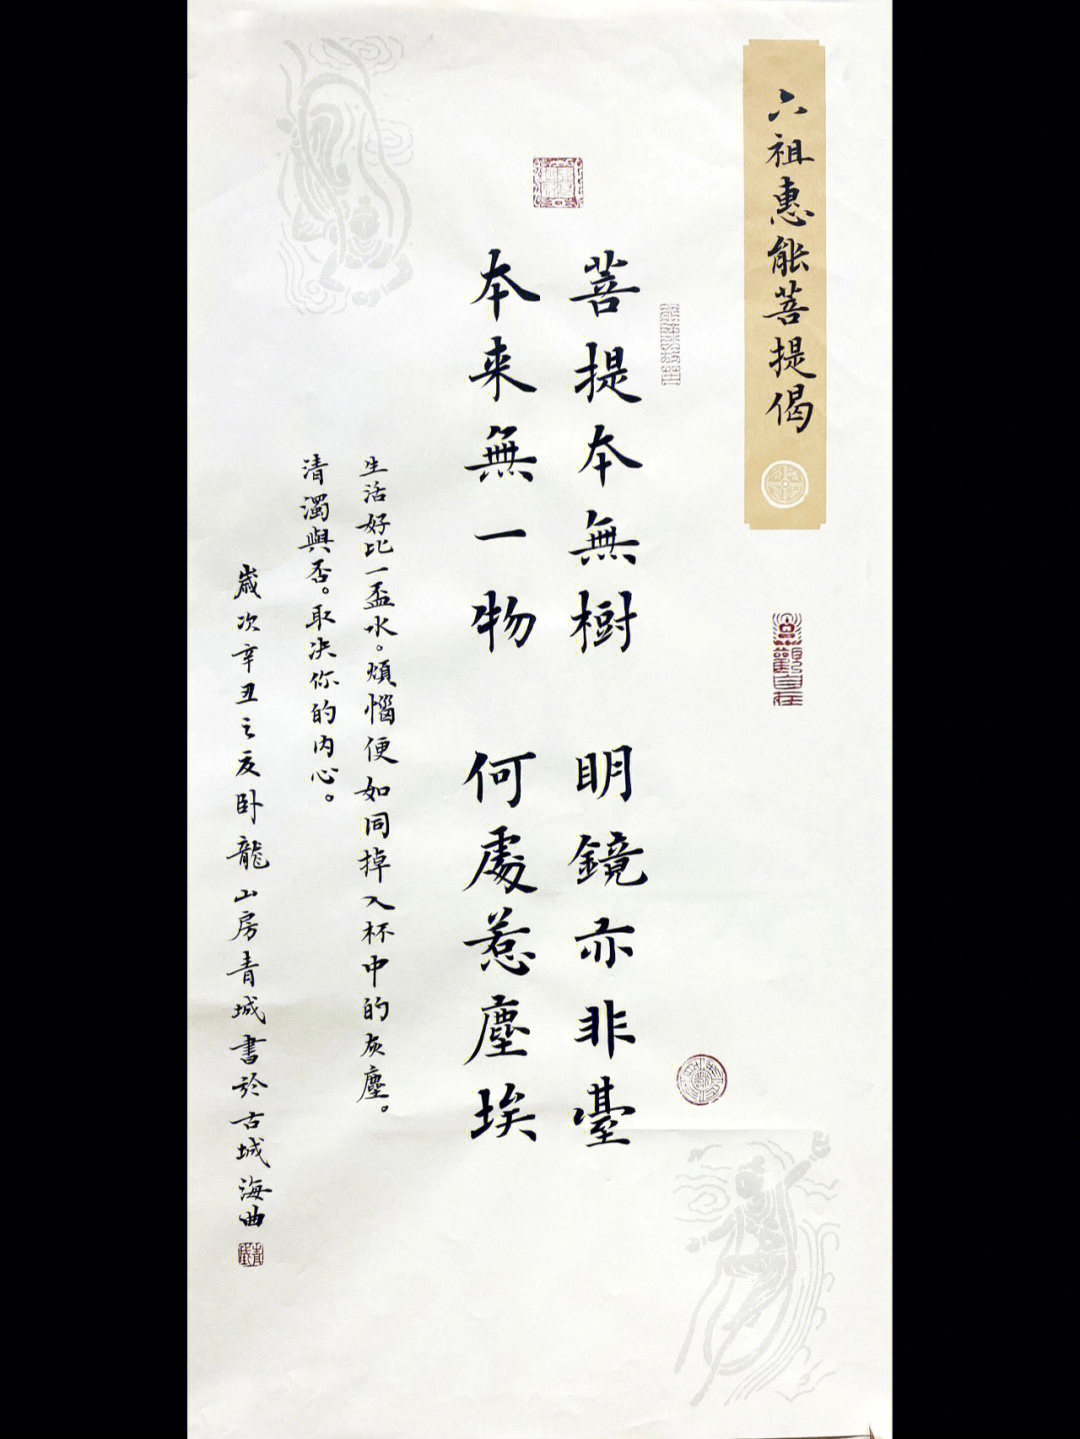 六祖惠能菩提偈
菩提本無樹 明鏡亦非臺
本来無一物 何處惹塵埃
生活好比一盃水。煩惱便如同掉入杯中的灰塵。
清濁與否。取决你的内心。
歲次辛丑之夏卧龍山房青城書於古城海曲